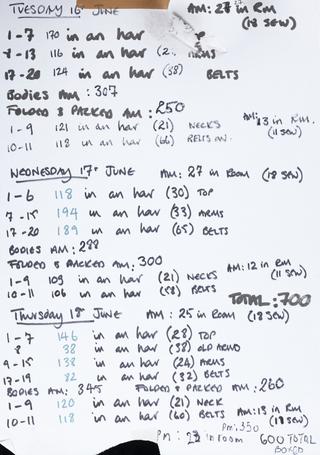 TUESDAY 16th JUNE AM: 27 in Rm
(18 SEW)
1-7 170 in an har
8-13 116 in an har (2 ARMS
17-20 124 in an har (38) BELTS
Bodies AM: 307
FOLDED & PACKED AM: 250
1-9 121 in an har (21) NECKS AM: 13 in Rm
10-11 118 in an har (66) BELTS (11 SEW)
WEDNESDAY 17th JUNE AM: 27 in Room (18 SEW)
1-6 118 in an har (30) TOP
7-15 194 in an har (33) ARMS
17-20 189 in an har (65) BELTS
BODIES AM: 288
FOLDED & PACKED AM: 300
1-9 109 in an har (21) NECKS AM: 12 in Rm
10-11 106 in an har (58) BELTS (11 SEW)
TOTAL: 700
Thursday 18th JUNE AM: 25 in Room (18 SEW)
1-7 146 in an har (28) TOP
8 38 in an har (38) OLD ARMO
9-15 138 in an har (24) ARMS
17-19 82 in an har (32) BELTS
BODIES AM: 345 FOLDED & PACKED AM: 260
1-9 120 in an har (21) NECK
10-11 118 in an har (60) BELTS AM: 13 in Rm
Pm: 350
Pm: in room 600 TOTAL
BOXED